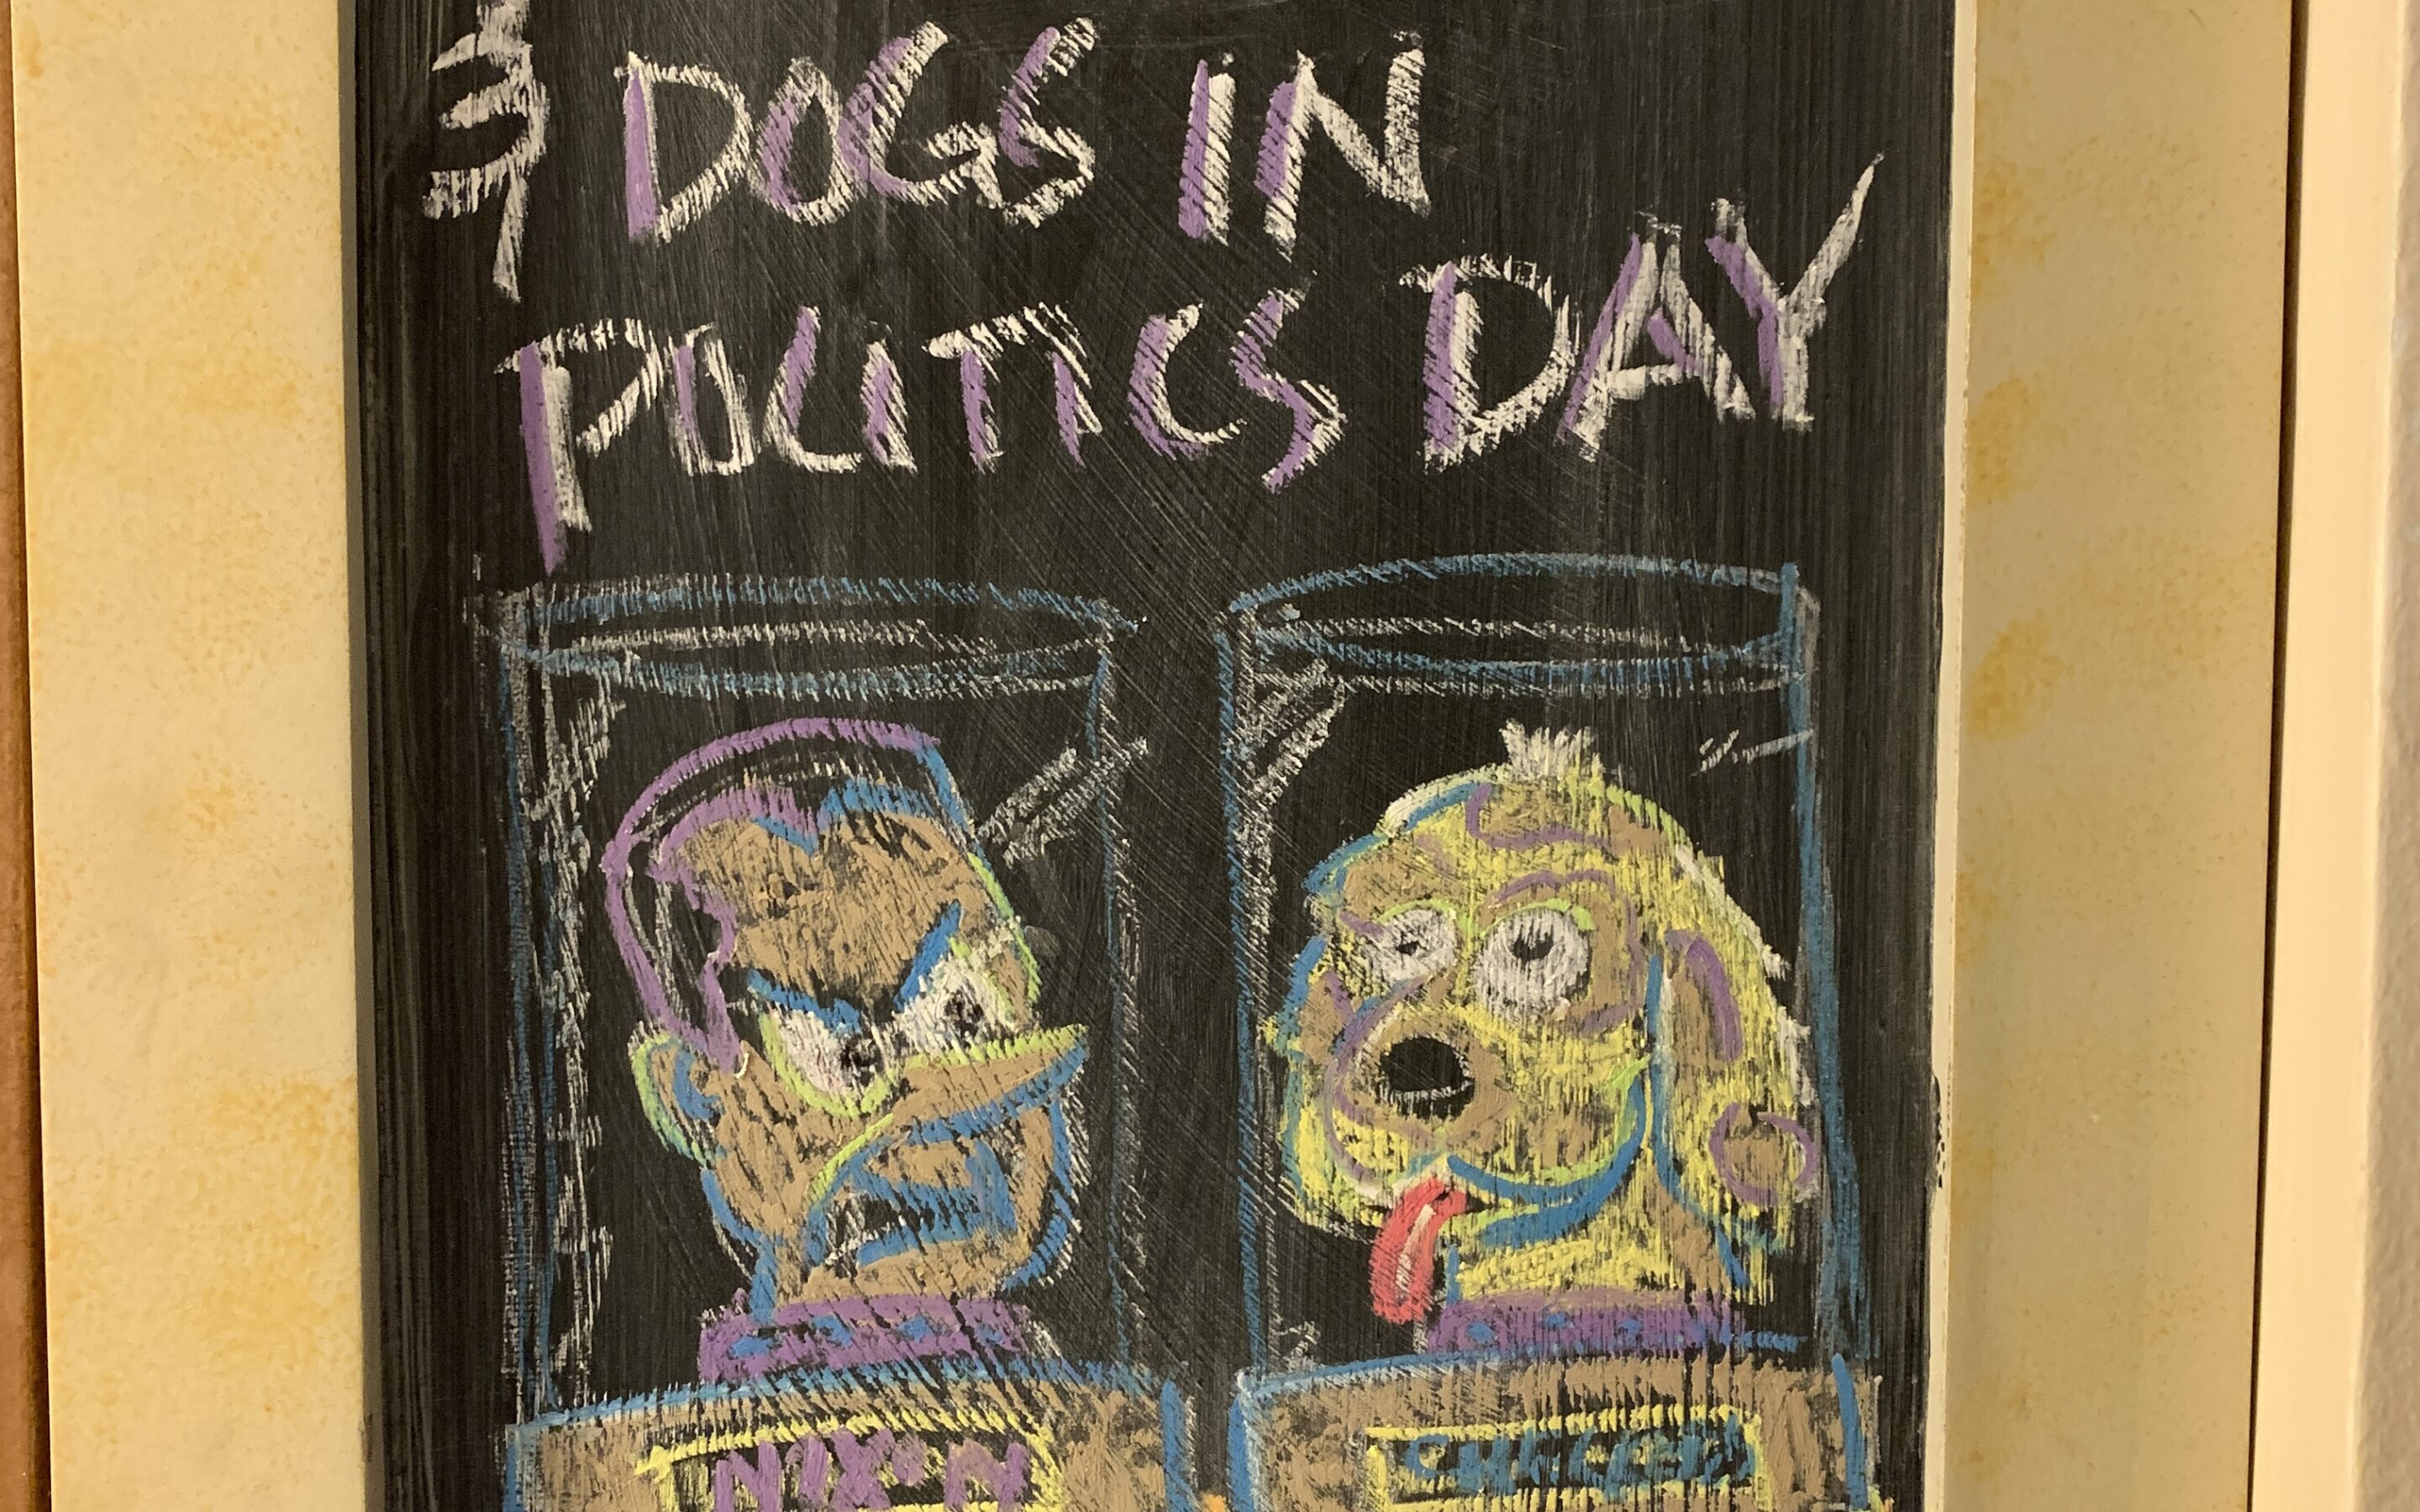 & DOGS IN
POLITICS DAY
NIXON
CHECKERS